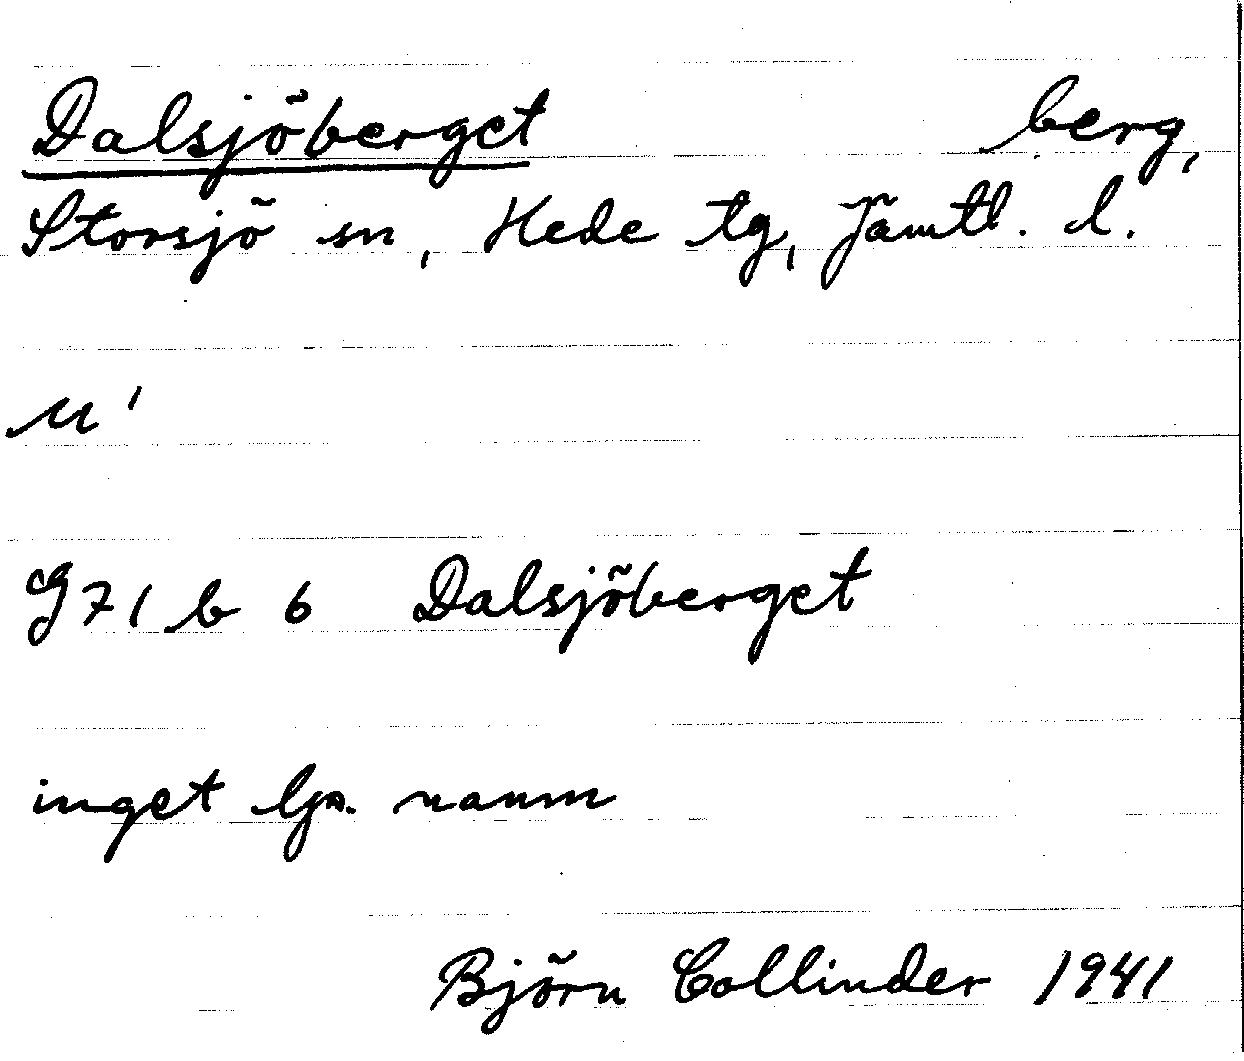 Dalsjöberget berg,
Storsjö sn, Hede tg, Jämtl. l.
G71 b 6 Dalsjöberget
inget lp. namn
Björn Collinder 1941